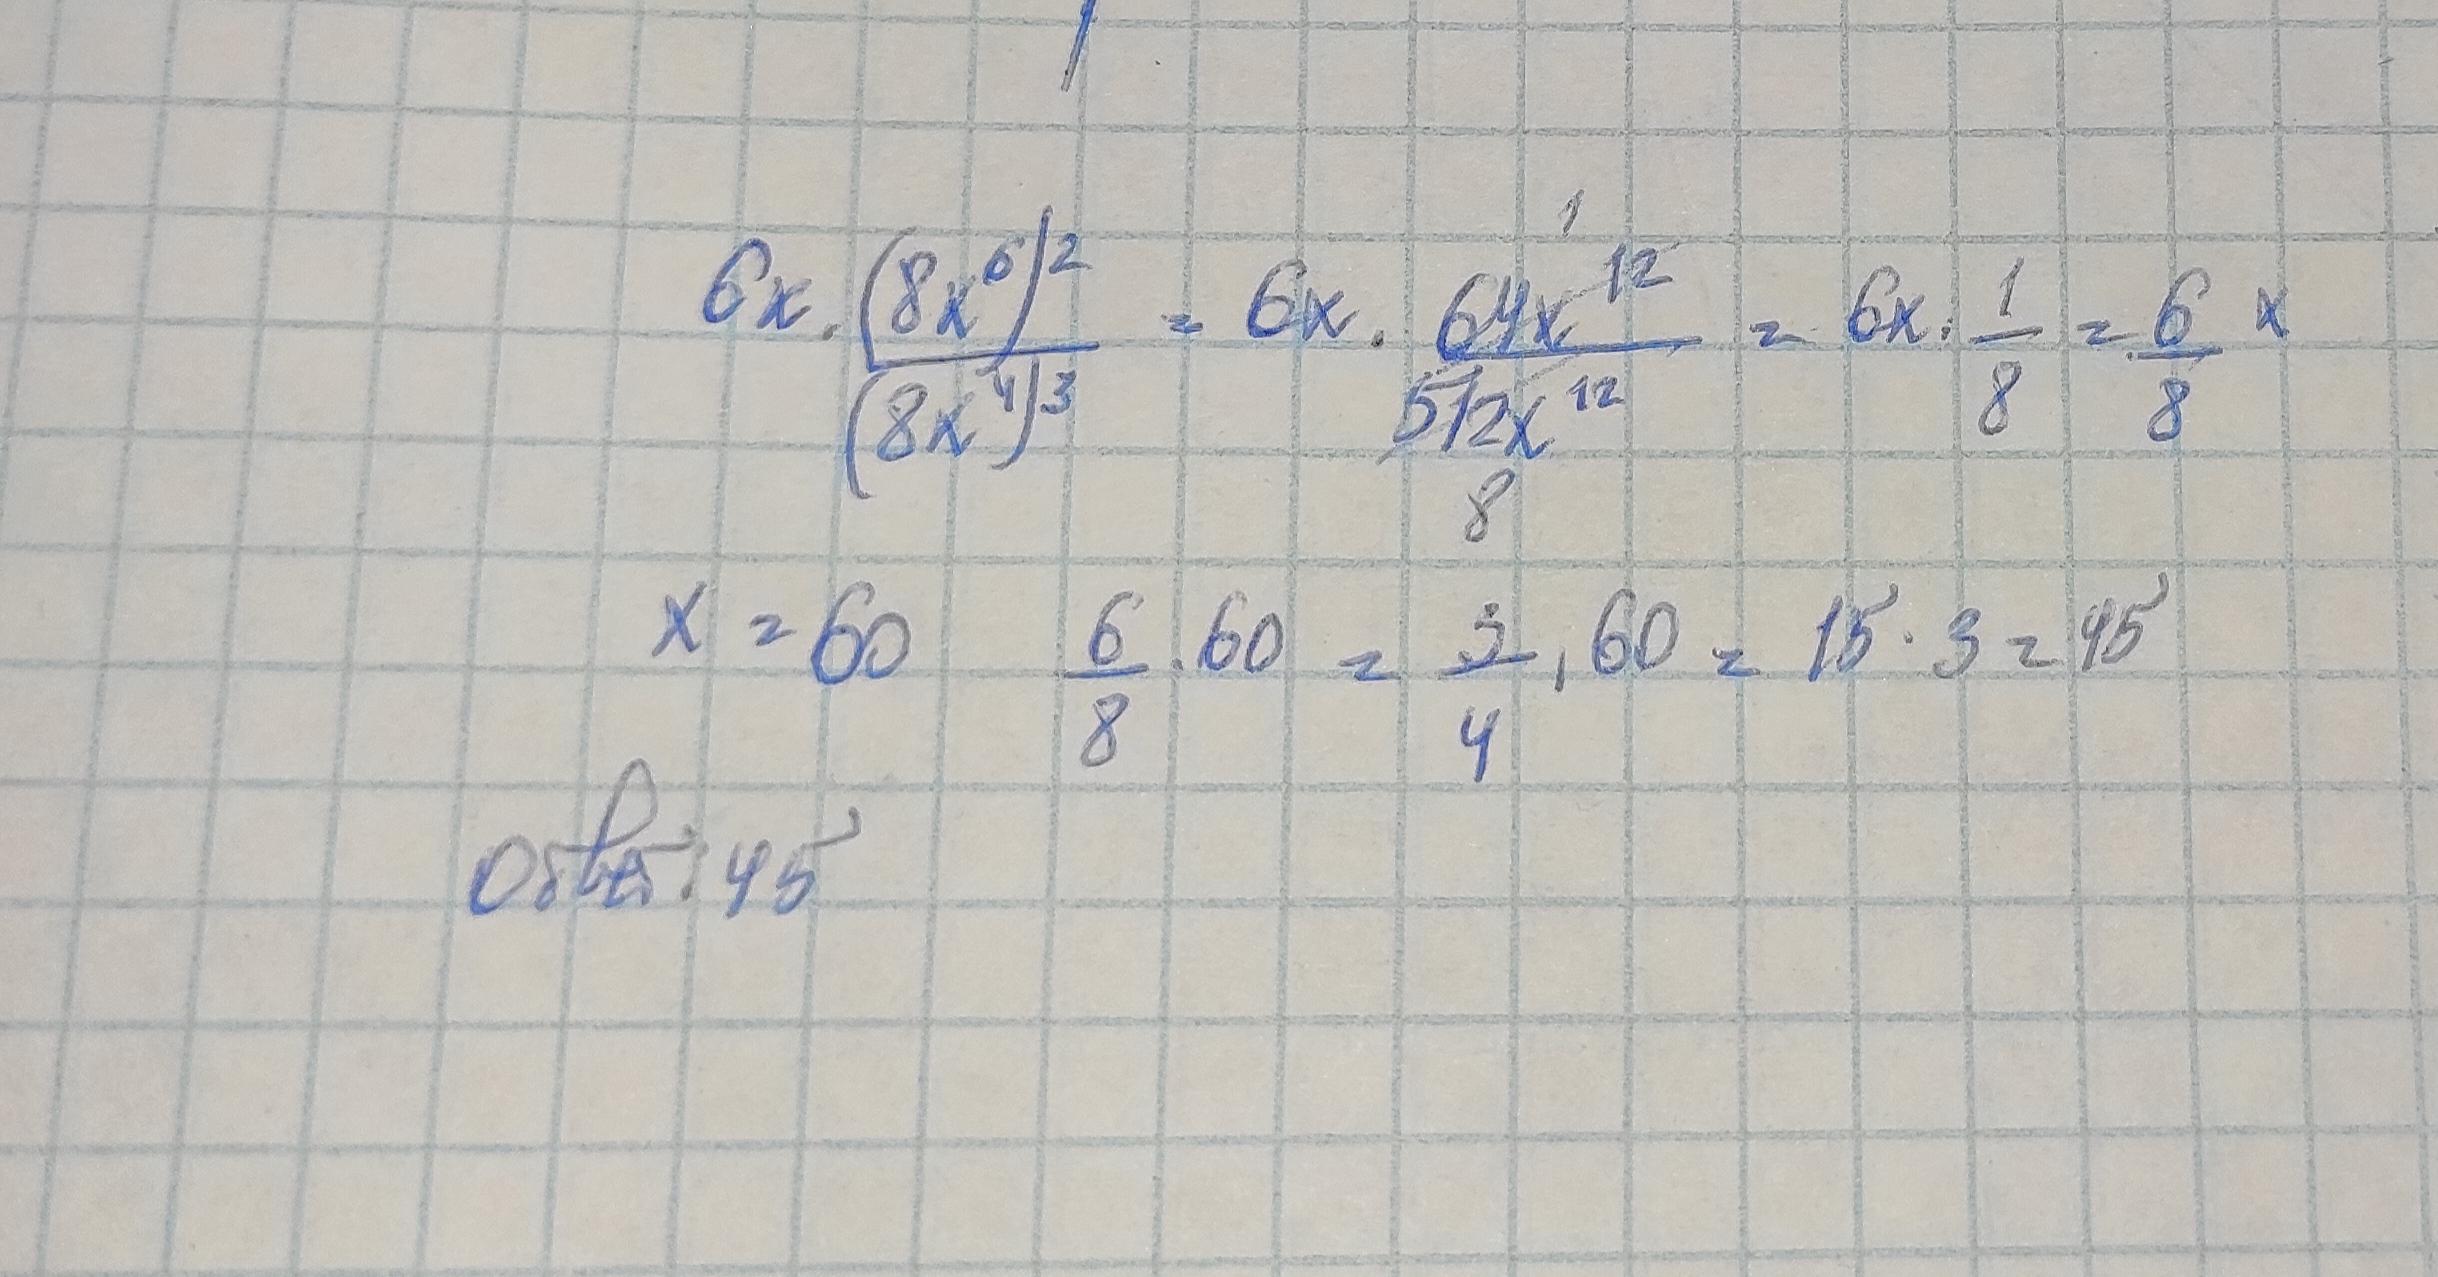 6x · (8x⁶)² / (8x⁴)³ = 6x · 64x¹² / 512x¹² = 6x · 1/8 = 6/8 x
x = 60 6/8 · 60 = 3/4 · 60 = 15 · 3 = 45
Ответ: 45